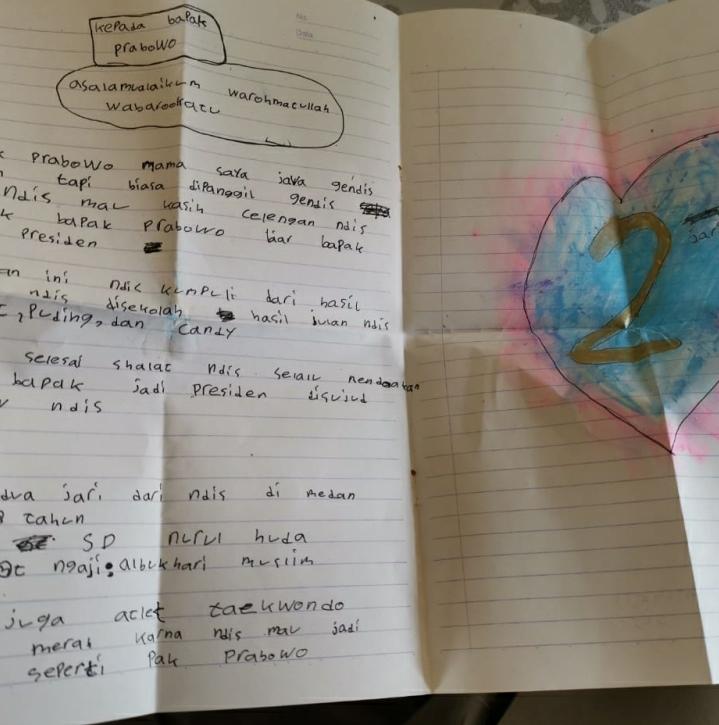 kepada bapak
prabowo
asalamualaikum warohmatullah
wabarookatu
prabowo mama saya java gendis
tapi biasa dipanggil gendis
ndis mau kasih celengan ndis
bapak prabowo biar bapak
presiden
ini ndis kumpuli dari hasil
ndis disekolah hasil jualan ndis
, puding, dan candy
selesai shalat ndis selalu mendoakan
bapak jadi presiden disujud
ndis
dua jari dari ndis di medan
8 tahun
SD nurul huda
ngaji: albukhari muslim
juga atlet taekwondo
merah karna ndis mau jadi
seperti pak prabowo
No.
Date
2
jari